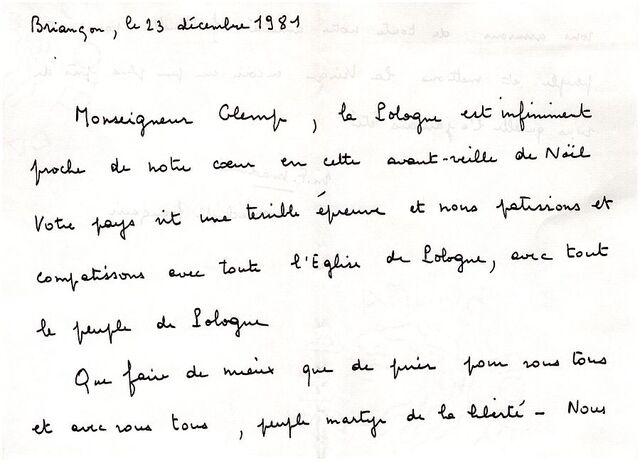 Briançon, le 23 décembre 1981
Monseigneur Glemp, la Pologne est infiniment
proche de notre cœur en cette avant-veille de Noël
Votre pays vit une terrible épreuve et nous patissons et
compatissons avec toute l'Eglise de Pologne, avec tout
le peuple de Pologne
Que faire de mieux que de prier pour vous tous
et avec vous tous, peuple martyr de la liberté - Nous